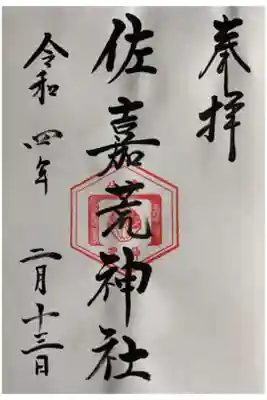 奉拝
佐嘉荒神社
令和四年 二月十三日